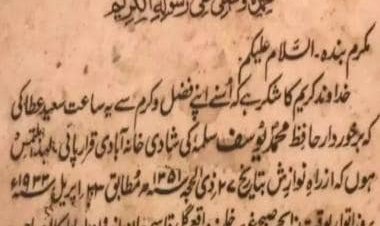 نحمدہ ونصلی علی رسولہ الکریم
مکرم بندہ۔ السّلام علیکم
خداوند کریم کا شکر ہے کہ اُسنے اپنے فضل و کرم سے یہ ساعت سعید عطا کی
کہ برخوردار حافظ محمد یوسف سلمہٗ کی شادی خانہ آبادی قرار پائی۔ لہٰذا ملتمس
ہوں کہ از راہِ نوازش بتاریخ ۲۷ ذی الحجہ ۱۳۵۱ھ مطابق ۲۳ اپریل ۱۹۳۳ء
بروز اتوار بوقت